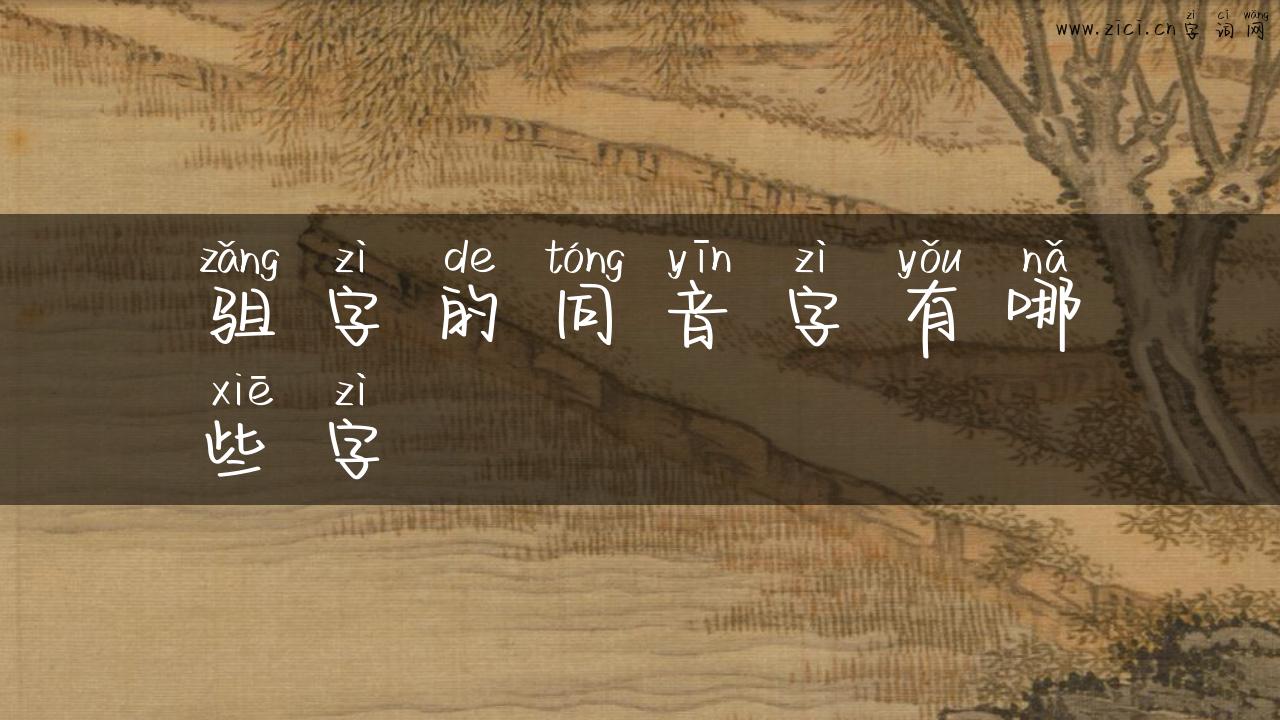 zì cí wǎng
www.zici.cn字词网
zǎng zì de tóng yīn zì yǒu nǎ
驵字的同音字有哪
xiē zì
些字